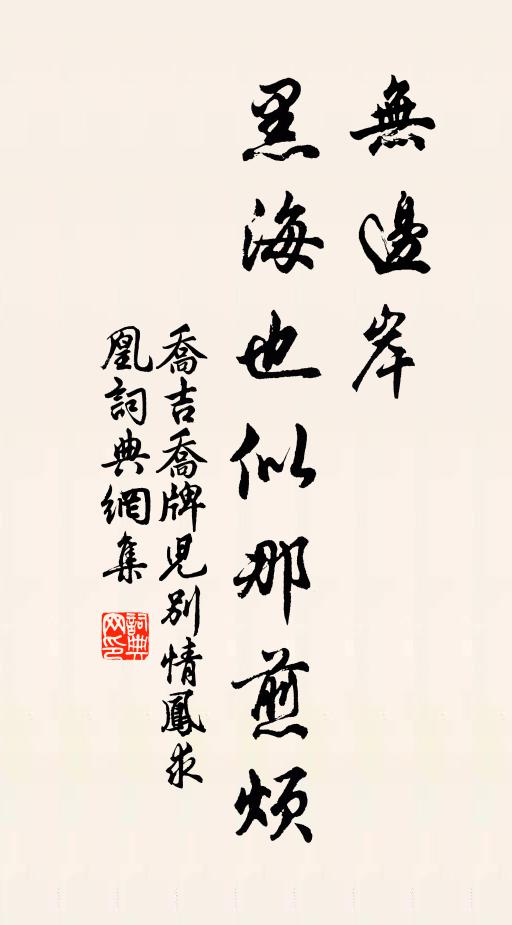 無邊岸
黑海也似那煎煩
喬吉喬牌兒別情鳳求
凰詞典網集
詞典
网印